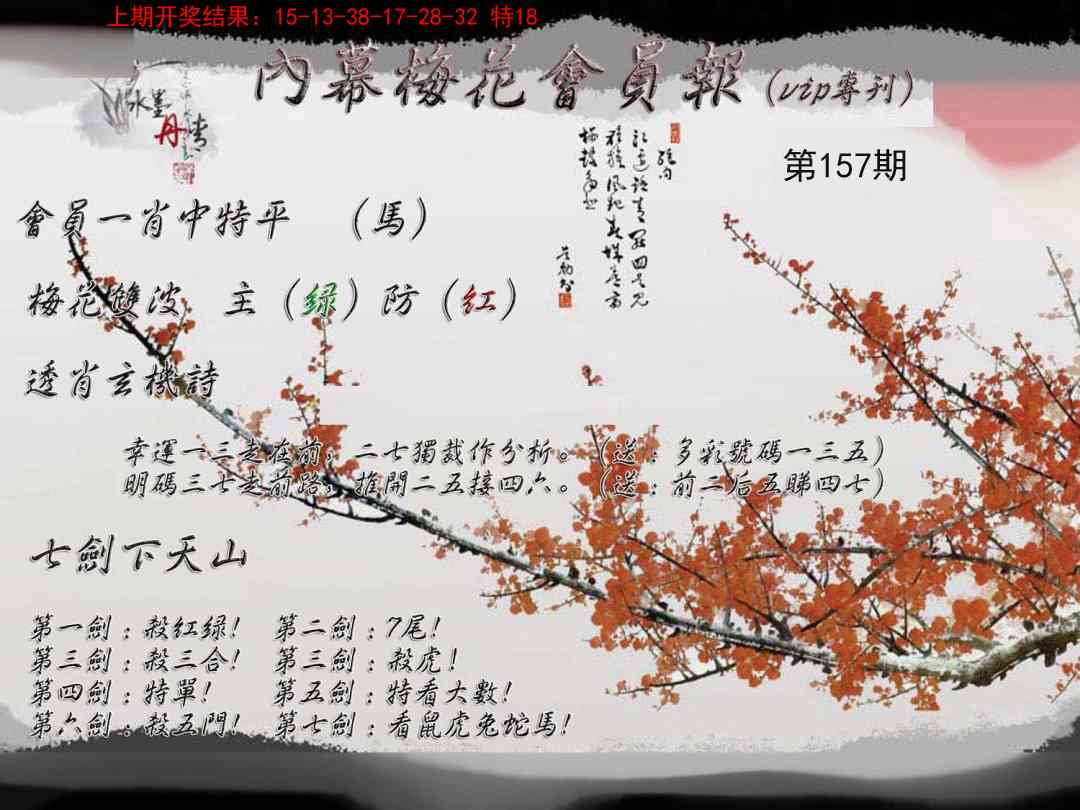 上期开奖结果：15-13-38-17-28-32 特18
內幕梅花會員報(vip專刊)
水墨丹青
第157期
會員一肖中特平 （馬）
梅花雙波 主（绿）防（红）
透肖玄機詩
幸運一三走在前，二七獨裁作分析。（送：多彩號碼一三五）
明碼三七走前路，推開二五接四六。（送：前二后五睇四七）
七劍下天山
第一劍：殺红绿！ 第二劍：7尾！
第三劍：殺三合！ 第三劍：殺虎！
第四劍：特單！ 第五劍：特看大數！
第六劍：殺五門！ 第七劍：看鼠虎兔蛇馬！